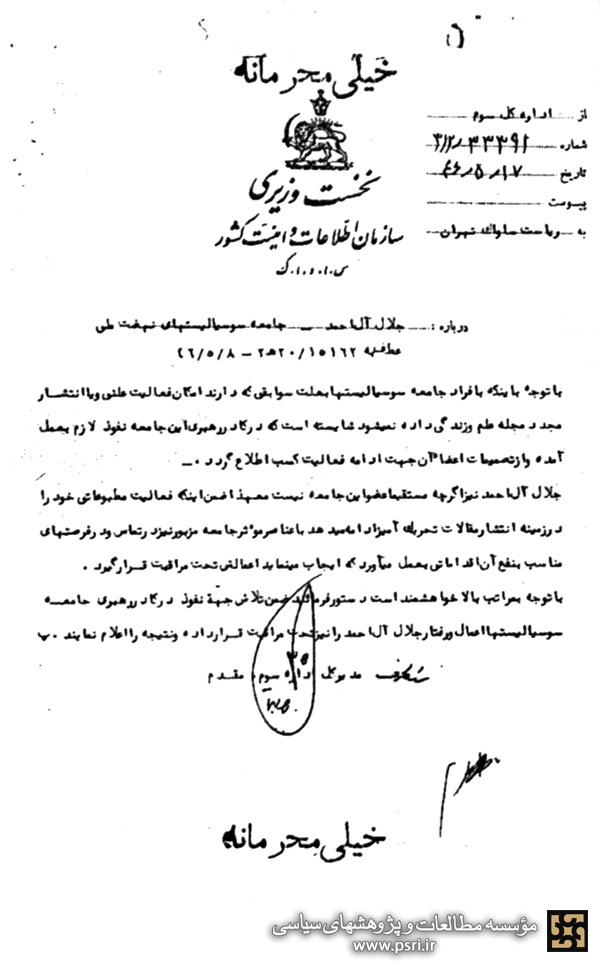 خیلی محرمانه
از اداره کل سوم
شماره ۳۱۲/۳۳۳۹۱
تاریخ ۴۶/۵/۱۷
پیوست
به ریاست ساواك تهران
نخست وزیری
سازمان اطلاعات و امنیت کشور
س.ا.و.ا.ک
درباره : جلال آل احمد ـ جامعه سوسیالیستهای نهضت ملی
عطف به ۱۵۱۶۲/۲۰ﻫ۲ – ۴۶/۵/۸
با توجه باینکه بافراد جامعه سوسیالیستها بعلت سوابقی که دارند امکان فعالیت علنی ویا انتشار
مجدد مجله علم وزندگی داده نمیشود شایسته است که درکادر رهبری این جامعه نفوذ لازم بعمل
آمده واز تصمیمات اعضاء آن جهت ادامه فعالیت کسب اطلاع گردد ۰ـ
جلال آل احمد نیز اگرچه مستقیما عضو این جامعه نیست معهذا ضمن اینکه فعالیت مطبوعاتی خود را
در زمینه انتشار مقالات تحریك آمیز ادامه میدهد با عناصر موثر جامعه مزبور نیز در تماس ودر فرصتهای
مناسب بنفع آن اقداماتی بعمل میآورد که ایجاب مینماید اعمالش تحت مراقبت قرار گیرد ۰
با توجه بمراتب بالا خواهشمند است دستور فرمائید ضمن تلاش جهة نفوذ درکادر رهبری جامعه
سوسیالیستها اعمال ورفتار جلال آل احمد را نیز تحت مراقبت قرار داده ونتیجه را اعلام نمایند ۰ب
مدیرکل اداره سوم مقدم
۳۵
خیلی محرمانه
مؤسسه مطالعات و پژوهشهای سیاسی
www.psri.ir